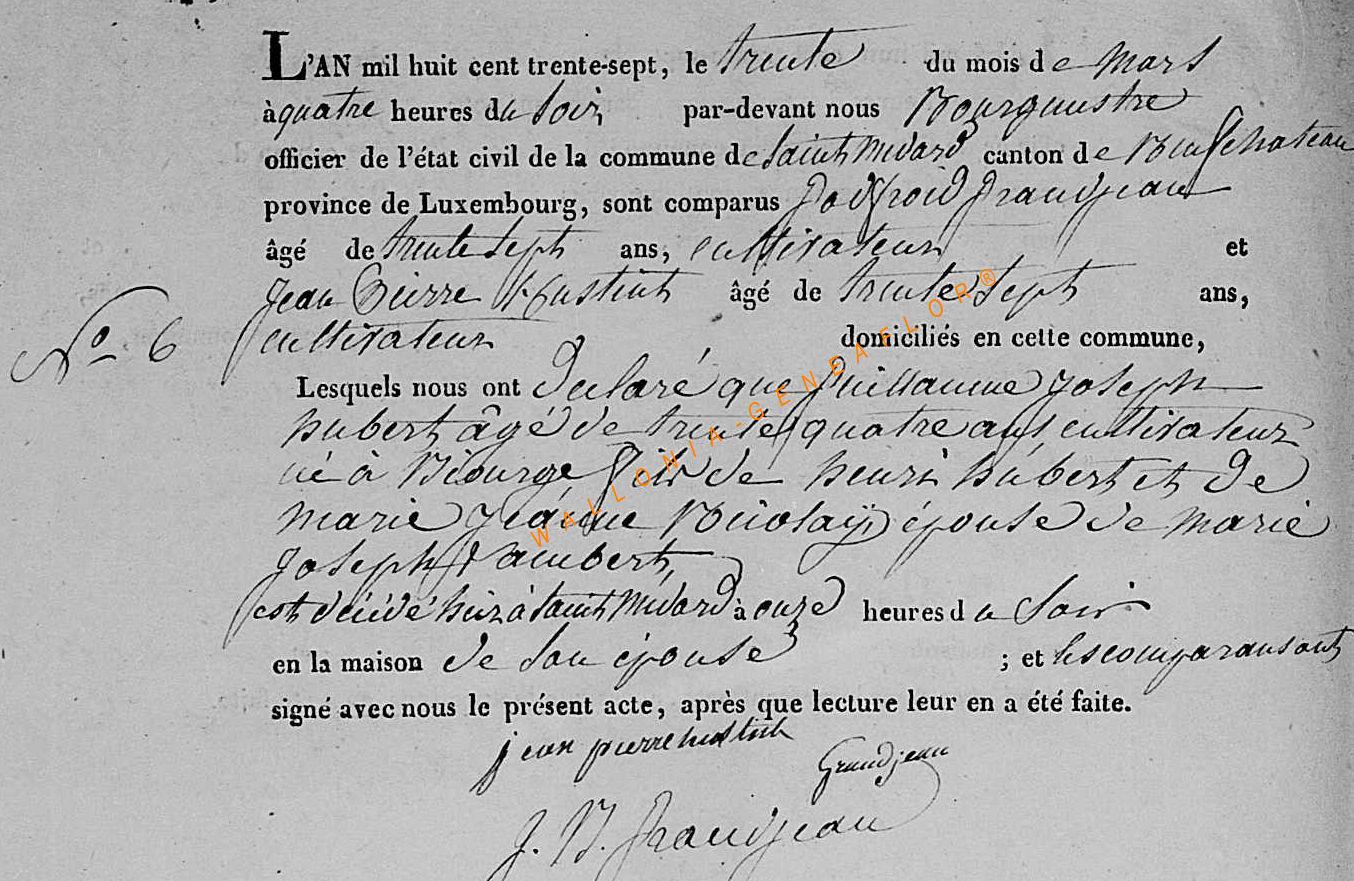 L'AN mil huit cent trente-sept, le trente du mois de Mars
à quatre heures du Soir par-devant nous Bourgumestre
officier de l'état civil de la commune de Saint Medard canton de Neufchateau
province de Luxembourg, sont comparus Godfroid Grandjean
âgé de trente Sept ans, cultivateur et
Jean Pierre Hustin âgé de trente Sept ans,
N° 6
cultivateur domiciliés en cette commune,
Lesquels nous ont declaré que Guillaume Joseph
hubert âgé de trente quatre ans, cultivateur
né à Biourge fils de henri hubert et de
marie Jeanne Nicolay, épouse de marie
Joseph Lambert,
est décédé hier à Saint Medard à onze heures du Soir
en la maison de Son épouse ; et les comparans ont
signé avec nous le présent acte, après que lecture leur en a été faite.
jean pierre
Grandjean
J. N. Grandjean
WALLONIA-GENEAFLOR®